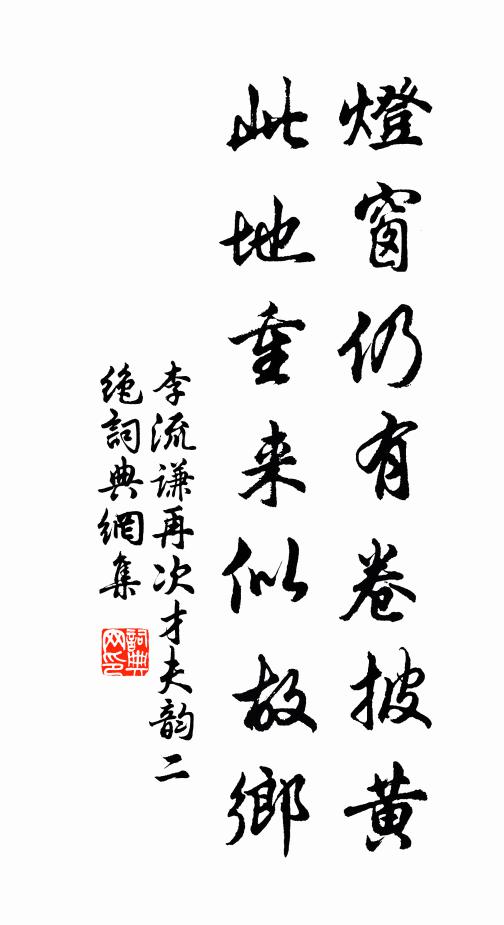 燈窗仍有卷披黄
此地重来似故鄉
李流谦再次才夫韵二
绝詞典網集
詞典网印